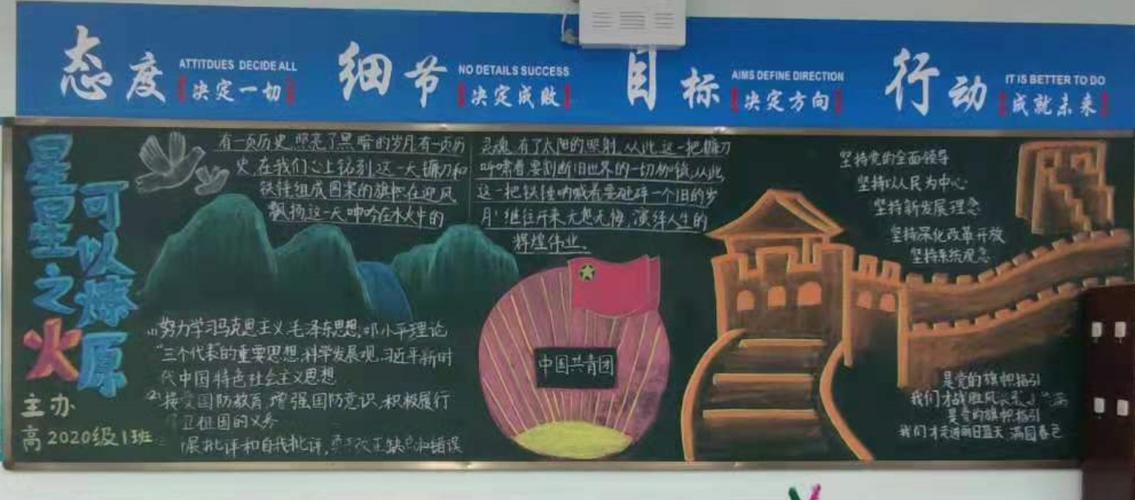 态度
ATTITDUES DECIDE ALL
决定一切
细节
NO DETAILS SUCCESS
决定成败
目标
AIMS DEFINE DIRECTION
决定方向
行动
IT IS BETTER TO DO
成就未来
星星之火
可以燎原
主办
高2020级1班
有一页历史,照亮了黑暗的岁月有一页历
史,在我们心上铭刻这一天镰刀和
铁锤组成图案的旗帜在迎风
飘扬这一天呻吟在水火中的
灵魂,有了太阳的照射,从此,这一把镰刀
呐啸着要割断旧世界的一切枷锁,从此,
这一把铁锤呐喊着要砸碎一个旧的岁
月!继往开来,无怨无悔,演绎人生的
辉煌伟业。
(1)努力学习马克思主义,毛泽东思想,邓小平理论
"三个代表"的重要思想,科学发展观,习近平新时
代中国特色社会主义思想
(2)接受国防教育,增强国防意识,积极履行
卫祖国的义务
展批评和自我批评,改正缺点和错误
中国共青团
坚持党的全面领导
坚持以人民为中心
坚持新发展理念
坚持深化改革开放
坚持系统观念
是党的旗帜指引
我们才战胜风
是党的旗帜指引
我们才走进丽日蓝天 满园春色